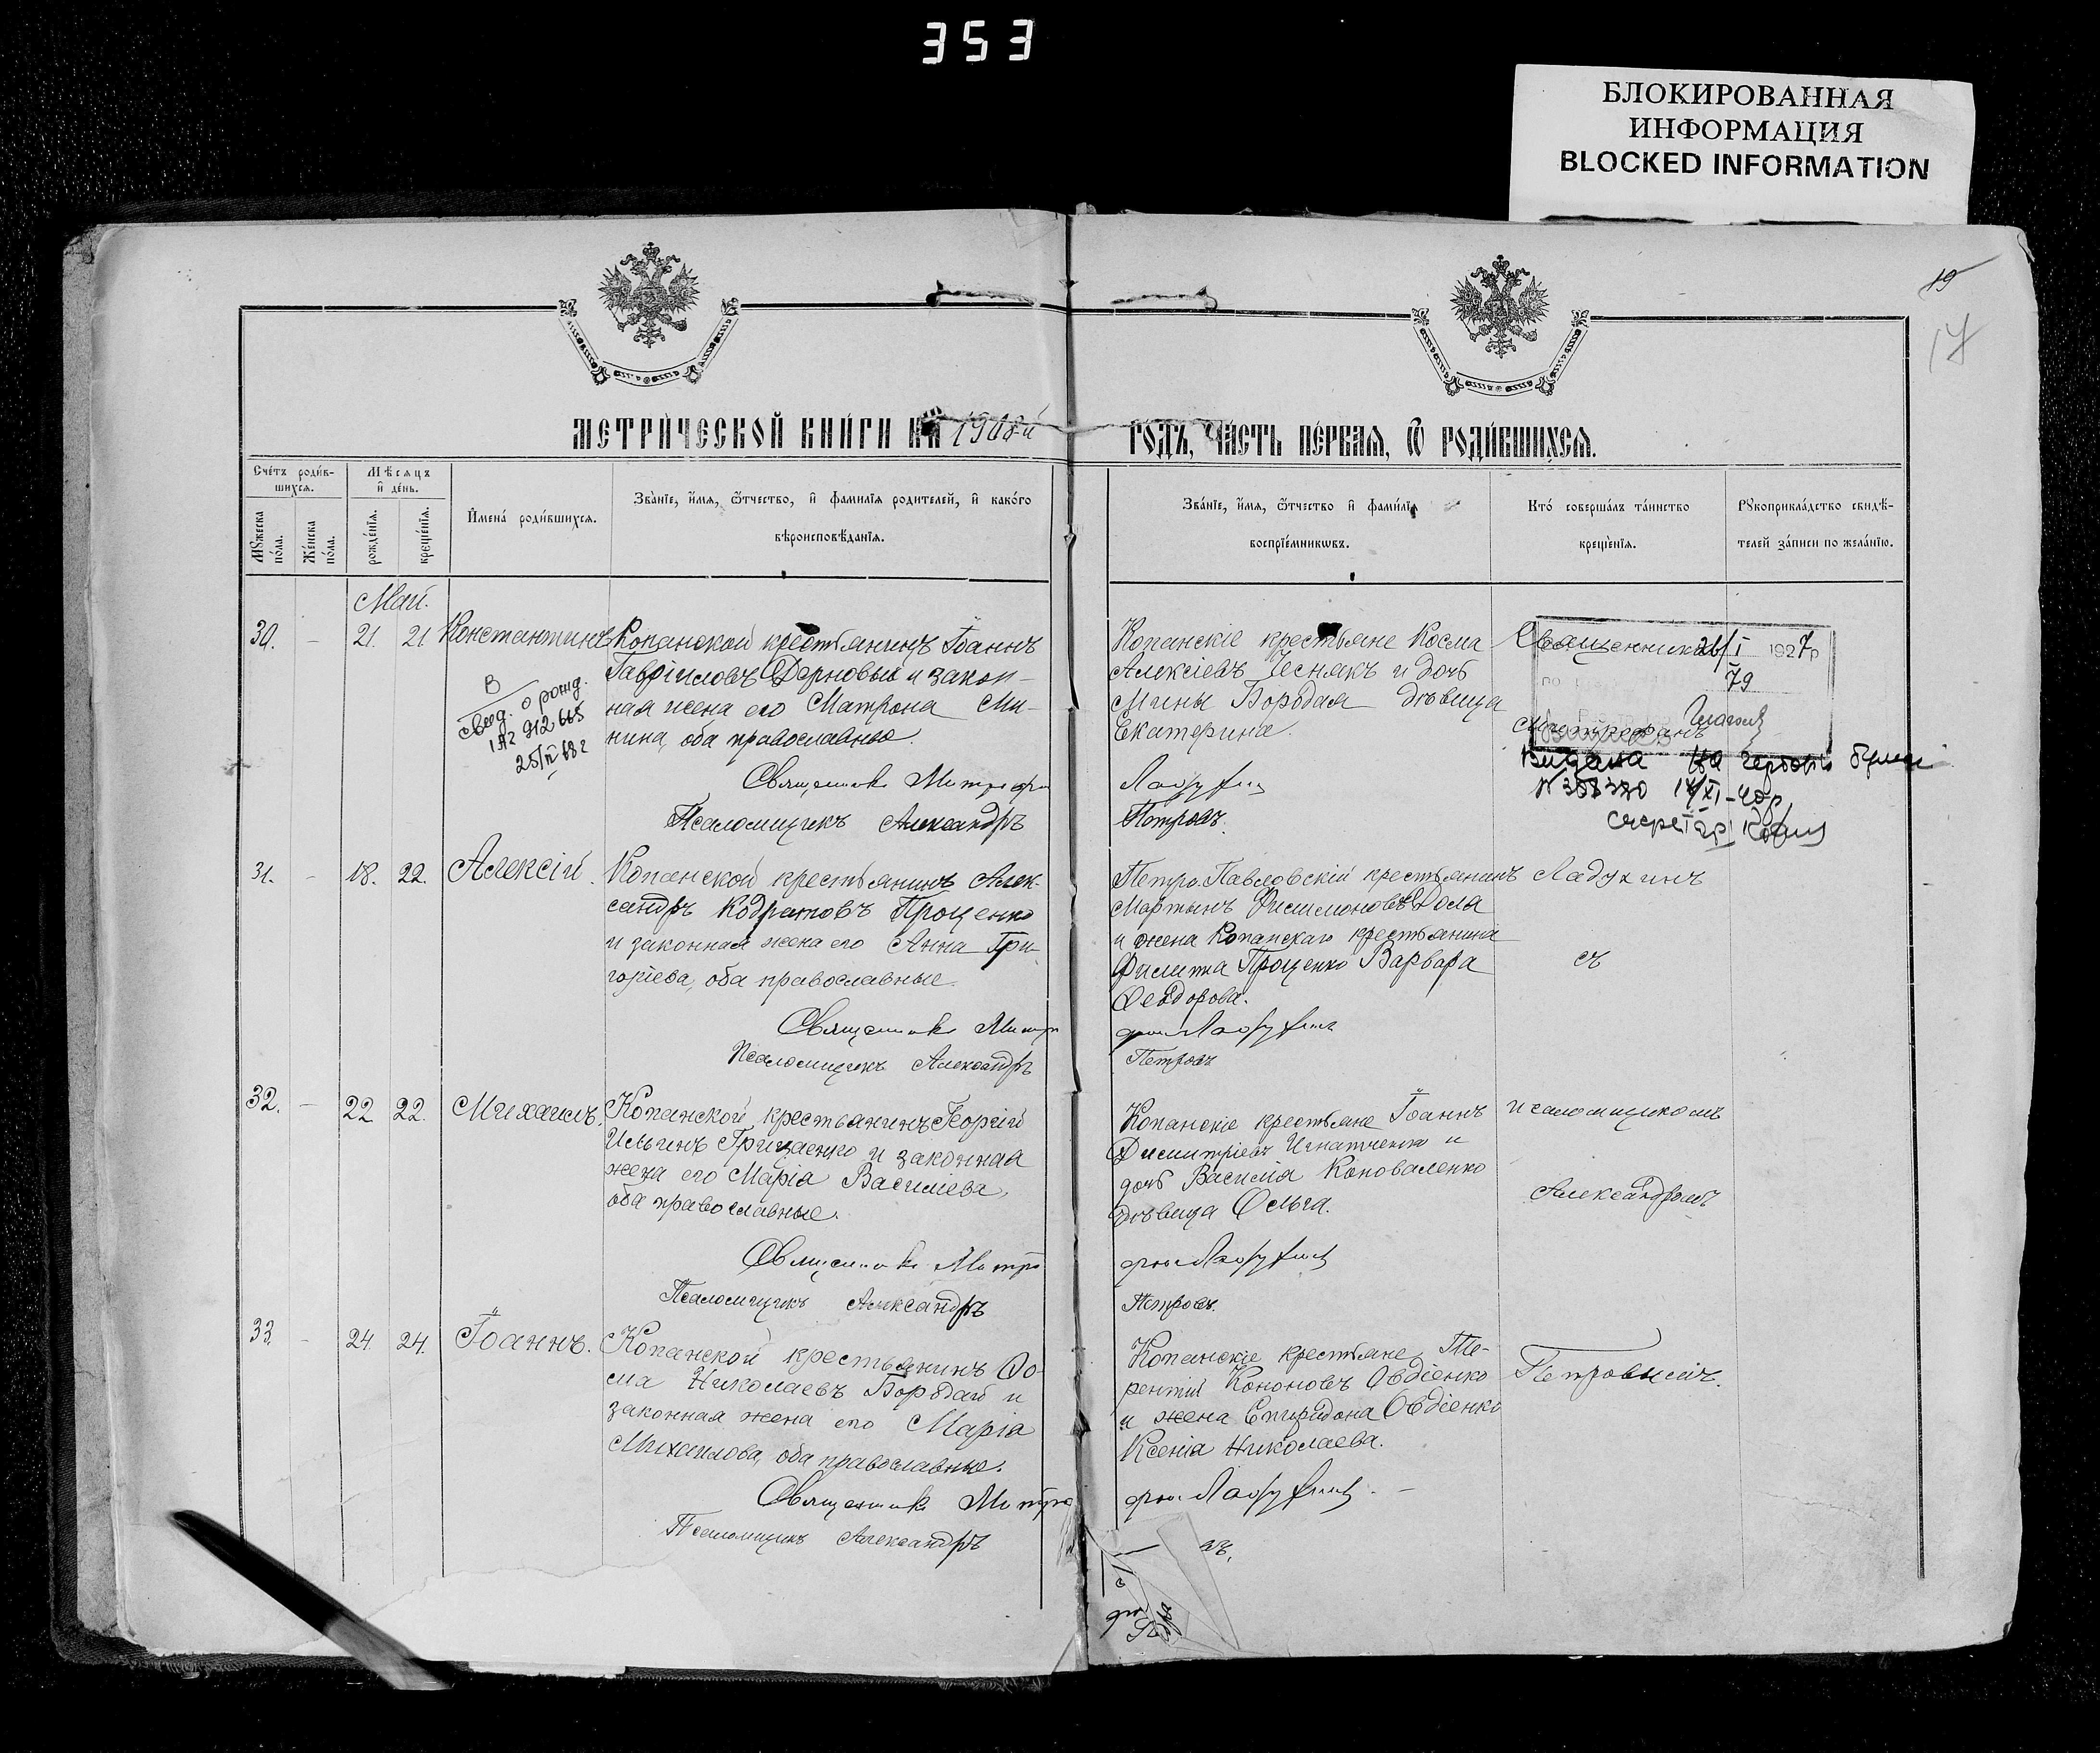 353
БЛОКИРОВАННАЯ
ИНФОРМАЦИЯ
BLOCKED INFORMATION
19
17
МЕТРИЧЕСКОЙ КНИГИ НА 1908й
ГОДЪ, ЧАСТЬ ПЕРВАЯ, Ѿ РОДИВШИХСЯ.
Счетъ родив-
шихся.
Мужеска
пола.
Женска
пола.
Мѣсяцъ
и день.
рожденія.
крещенія.
Имена родившихся.
Званіе, имя, ѿтчество, и фамилія родителей, и какого
вѣроисповѣданія.
Званіе, имя, ѿтчество и фамилія
воспріемниковъ.
Кто совершалъ таинство
крещенія.
Рукоприкладство свидѣ-
телей записи по желанію.
Май.
30. - 21. 21 Константинъ
Копанской крестьянинъ Іоаннъ
Гавріиловъ Дерновый и закон-
ная жена его Матрона Ми-
нина, оба православные.
В
свид. о рожд.
912665
25/IV 68г
Священникъ Митрофа
Псаломщикъ Александръ
Копанскіе крестьяне Косма
Алексіевъ Чеснякъ и дочь
Мины Бородая дѣвица
Екатерина.
Ладухин
Петровъ.
Священникъ
21/I 1927р
79
Видана на
N 388380 14/XI-40р,
секретар
31. - 18. 22. Алексій.
Копанской крестьянинъ Алек-
сандръ Кодратовъ Проценко
и законная жена его Анна Гри-
горіева, оба православные.
Священникъ Митро
Псаломщикъ Александръ
Петро-Павловскій крестьянинъ
Мартынъ Филимоновъ Дола
и жена Копанскаго крестьянина
Филиппа Проценко Варвара
Феодорова.
фанъ Ладухинъ
Петровъ
Ладухинъ
съ
32. - 22 22. Михаилъ.
Копанской крестьянинъ Георгій
Ильинъ Грицаенко и законная
жена его Марія Василиева,
оба православные.
Священникъ Митро
Псаломщикъ Александръ
Копанскіе крестьяне Іоаннъ
Димитріевъ Игнатченко и
дочь Василія Коноваленко
дѣвица Ольга.
фан Ладухин
Петровъ.
псаломщикомъ
Александромъ
33. - 24. 24. Іоаннъ.
Копанской крестьянинъ Ѳо-
ма Николаевъ Бородай и
законная жена его Марія
Михаилова, оба православные.
Священникъ Митро
Псаломщикъ Александръ
Копанскіе крестьяне, Те-
рентій Кононовъ Овдіенко
и жена Спиридона Овдіенко
Ксенія Николаева.
фан Ладухин.
въ.
Петровымъ.